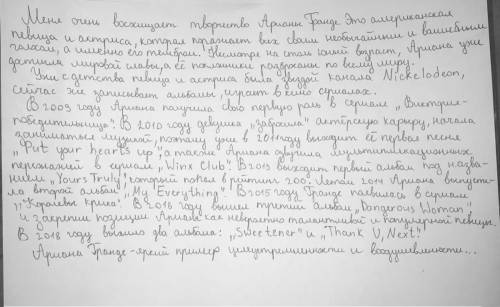 Меня очень восхищает творчество Арианы Гранде. Это американская
певица и актриса, которая поражает всех своим необычайным и волшебным
голосом, а именно его тембром. Несмотря на столь юный возраст, Ариана уже
достигла мировой славы, а её поклонники разбросаны по всему миру.
Уже с детства певица и актриса была звездой канала Nickelodeon,
сейчас же записывает альбомы, играет в кино сериалах.
В 2009 году Ариана получила свою первую роль в сериале „Виктория-
победительница". В 2010 году девушка „забросила" актёрскую карьеру, начала
заниматься музыкой, поэтому уже в 2011 году выходит её первая песня
„Put your hearts up", а также Ариана озвучила мультипликационных
персонажей в сериале „Winx Club". В 2013 выходит первый альбом под назва-
нием „Yours Truly", который попал в рейтинг 200. Летом 2014 Ариана выпусти-
ла второй альбом „My Everything". В 2015 году Гранде появилась в сериале
„Королевы крика". В 2016 году вышел третий альбом „Dangerous Woman"
и закрепил позиции Арианы как невероятно талантливой и популярной певицы.
В 2018 году вышло два альбома: „Sweetener" и „Thank U, Next".
Ариана Гранде - яркий пример целеустремленности и воодушевленности...